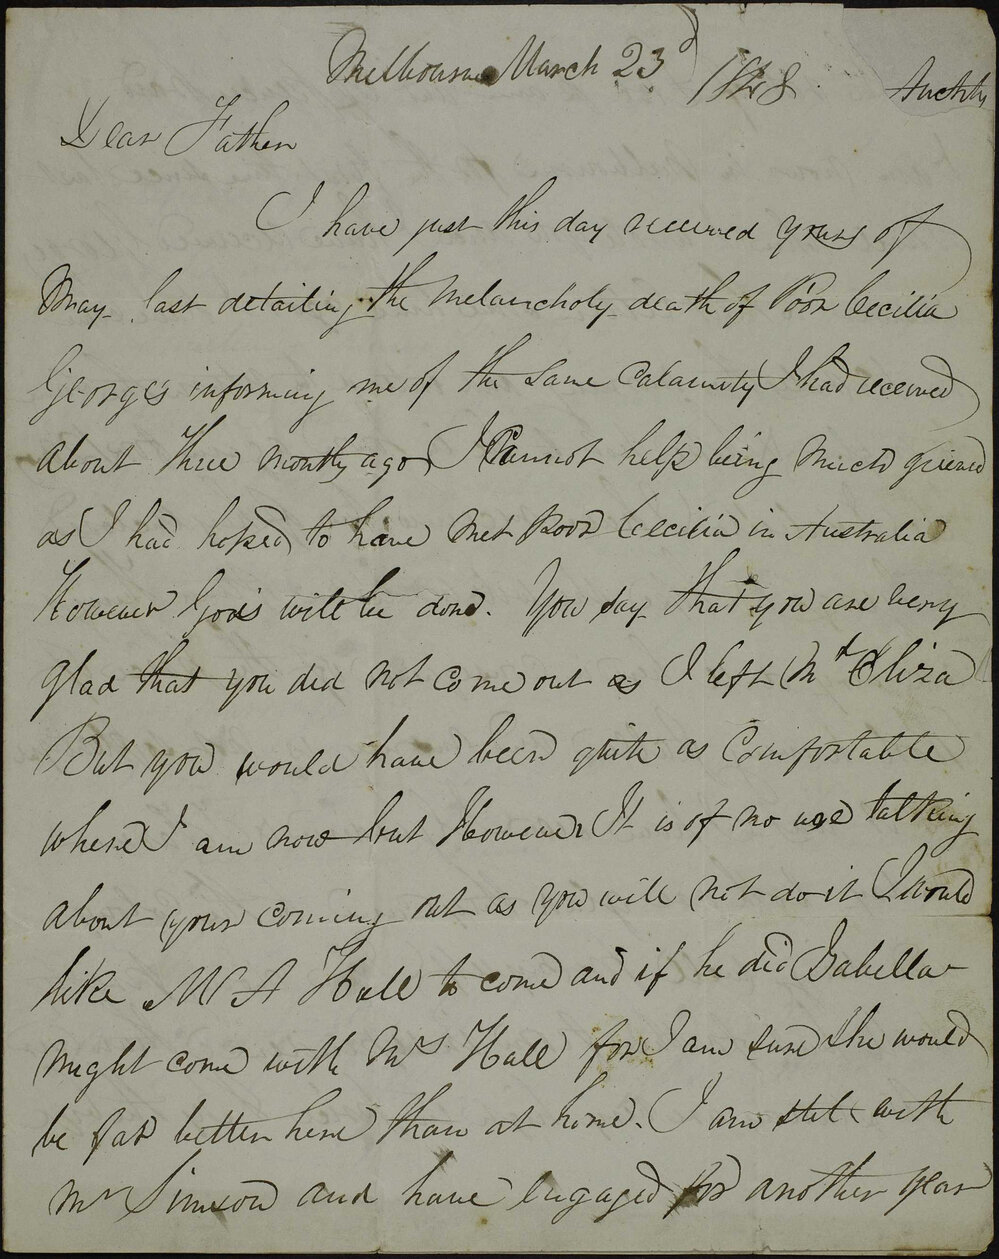 Melbourne March 23d 1848
Dear Father
I have just this day received yours of
May last detailing the melancholy death of Poor Cecilia
George's informing me of the same calamity I had received
about three months ago I cannot help being much grieved
as I had hoped to have met poor Cecilia in Australia
However God's will be done. You say that you are very
glad that you did not come out as I left Mt Eliza
But you would have been quite as comfortable
where I am now but However It is of no use talking
about your coming out as you will not do it I would
like Mr A Hall to come and if he did Isabella
might come with Mrs Hall for I am sure she would
be far better here than at home. I am still with
Mr Simson and have engaged for another year